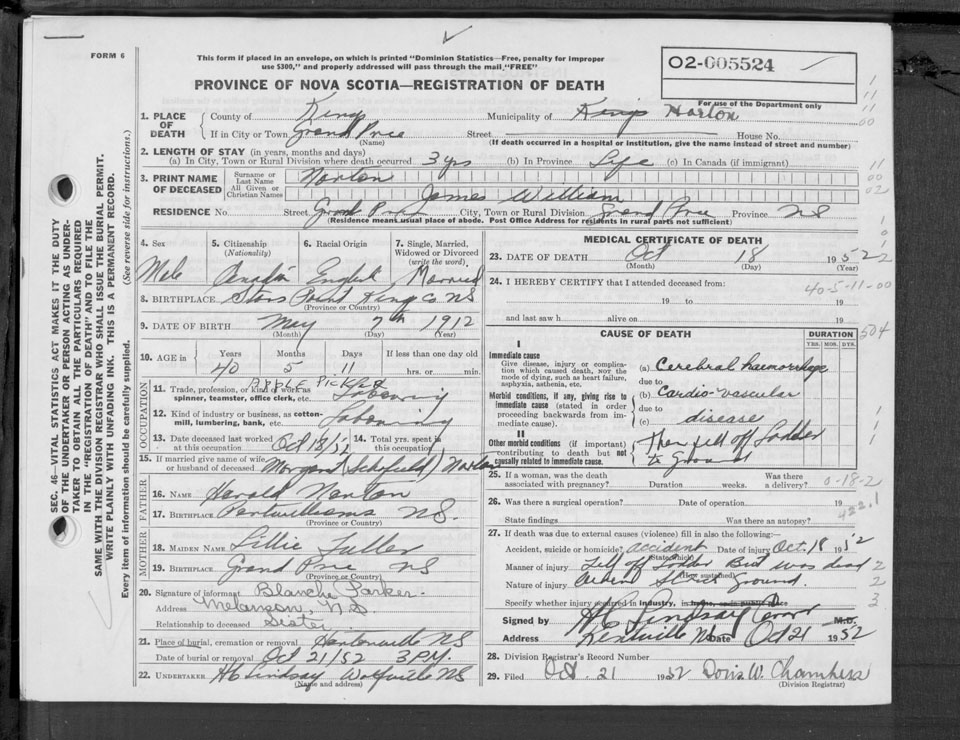 FORM 6
This form if placed in an envelope, on which is printed "Dominion Statistics—Free, penalty for improper
use $300," and properly addressed will pass through the mail "FREE"
O2-005524
PROVINCE OF NOVA SCOTIA—REGISTRATION OF DEATH
For use of the Department only
1. PLACE OF DEATH County of Kings Municipality of Kings Horton
If in City or Town Grand Pre Street House No.
(Name) (If death occurred in a hospital or institution, give the name instead of street and number)
2. LENGTH OF STAY (in years, months and days)
(a) In City, Town or Rural Division where death occurred 3 yrs (b) In Province Life (c) In Canada (if immigrant)
3. PRINT NAME OF DECEASED Surname or Last Name Norton
All Given or Christian Names James William
RESIDENCE No. Street Grand Pre City, Town or Rural Division Grand Pre Province NS
(Residence means usual place of abode. Post Office Address for residents in rural parts not sufficient)
4. Sex 5. Citizenship (Nationality) 6. Racial Origin 7. Single, Married, Widowed or Divorced (write the word)
Male English Married
8. BIRTHPLACE Point Kings Co NS
(Province or Country)
9. DATE OF BIRTH May 7th 1912
(Month) (Day) (Year)
10. AGE in Years Months Days If less than one day old
40 5 11 hrs. or min.
OCCUPATION
11. Trade, profession, or kind of work as spinner, teamster, office clerk, etc. APPLE Picker Laboring
12. Kind of industry or business, as cotton-mill, lumbering, bank, etc. Laboring
13. Date deceased last worked at this occupation Oct 18/52 14. Total yrs. spent in this occupation
15. If married give name of wife or husband of deceased Margaret (Schofield) Norton
FATHER
16. NAME Harold Norton
17. BIRTHPLACE Portwilliams NS.
(Province or Country)
MOTHER
18. MAIDEN NAME Lillie Fuller
19. BIRTHPLACE Grand Pre NS
(Province or Country)
20. Signature of informant Blanche Parker
Address Melanson, NS
Relationship to deceased Sister
21. Place of burial, cremation or removal NS
Date of burial or removal Oct 21/52 3 PM.
22. UNDERTAKER HC Lindsay Wolfville NS
(Name and address)
MEDICAL CERTIFICATE OF DEATH
23. DATE OF DEATH Oct 18 1952
(Month) (Day) (Year)
24. I HEREBY CERTIFY that I attended deceased from: 40-5-11-00
19 to 19
and last saw h alive on 19
504
CAUSE OF DEATH DURATION
YRS. MOS. DYS.
I
Immediate cause
Give disease, injury or complication which caused death, NOT the mode of dying, such as heart failure, asphyxia, asthenia, etc.
(a) Cerebral haemorrhage
due to
Morbid conditions, if any, giving rise to immediate cause (stated in order proceeding backwards from immediate cause).
(b) Cardio-vascular
due to
(c) disease
II
Other morbid conditions (if important) contributing to death but not causally related to immediate cause.
Then fell off Ladder
to Ground
25. If a woman, was the death associated with pregnancy? Duration weeks. Was there a delivery? 0-18-2
26. Was there a surgical operation? Date of operation 19
422.1
State findings Was there an autopsy?
27. If death was due to external causes (violence) fill in also the following:
Accident, suicide or homicide? accident Date of injury Oct. 18 1952
(State which)
Manner of injury Fell off Ladder But was dead 2
(How sustained)
Nature of injury when struck Ground. 2
Specify whether injury occurred in industry, in home, or in public place 3
Signed by HC Lindsay Coroner M.D.
Address Kentville NS Date Oct 21 1952
28. Division Registrar's Record Number
29. Filed Oct. 21 1952 Doris W. Chambers
(Division Registrar)
SEC. 46—VITAL STATISTICS ACT MAKES IT THE DUTY
OF THE UNDERTAKER OR PERSON ACTING AS UNDER-
TAKER TO OBTAIN ALL THE PARTICULARS REQUIRED
IN THE "REGISTRATION OF DEATH" AND TO FILE THE
SAME WITH THE DIVISION REGISTRAR WHO SHALL ISSUE THE BURIAL PERMIT.
WRITE PLAINLY WITH UNFADING INK. THIS IS A PERMANENT RECORD.
Every item of information should be carefully supplied. (See reverse side for instructions.)